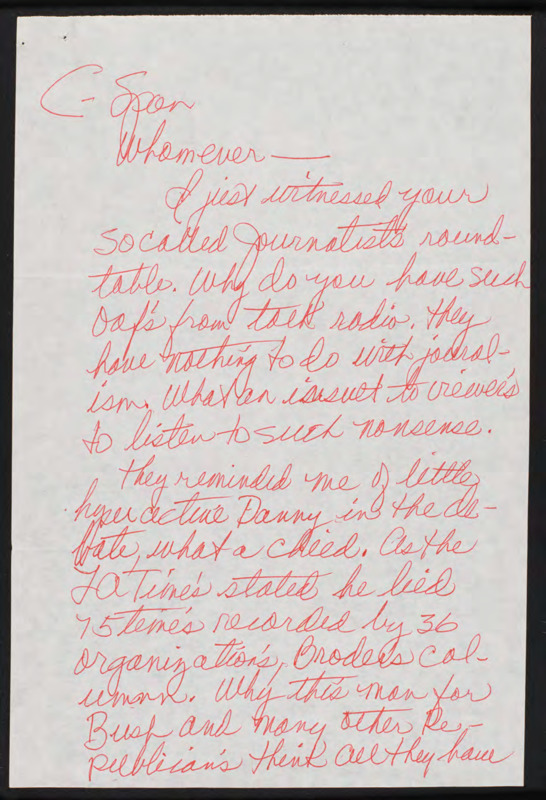 C-Span
Whomever —
I just witnessed your
Socalled Journalist's round-
table. Why do you have such
Oaf's from talk radio. they
have nothing to do with joural-
ism. What an insuet to viewers
to listen to such nonsense.
They reminded me of little
hyper active Danny in the de-
bate, what a child. As the
LA Time's stated he lied
75 time's recorded by 36
organization's, Broders col-
umnn. Why this man for
Bush and many other Re-
publican's think all they have